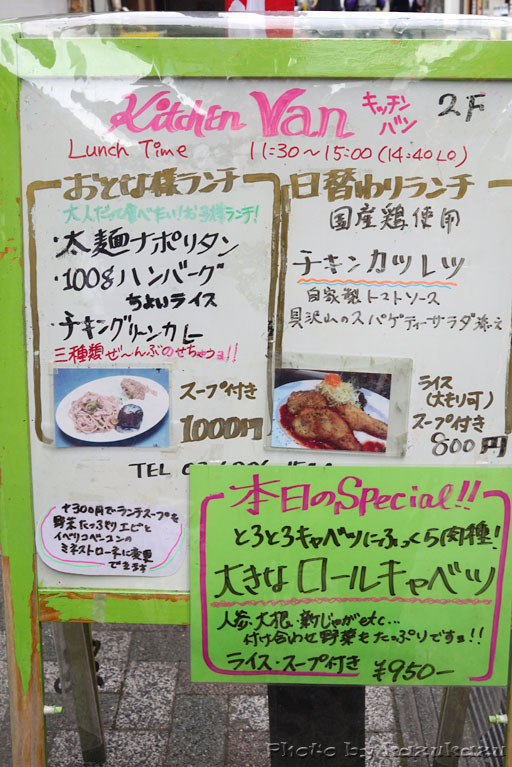 Kitchen Van キッチンバン 2F
Lunch Time 11:30～15:00 (14:40LO)
おとな様ランチ
大人だって食べたい!お子様ランチ!
・太麺ナポリタン
・100gハンバーグ
ちょいライス
・チキングリーンカレー
三種類ぜ～んぶのせちゃうョ!!
スープ付き
1000円
日替わりランチ
国産鶏使用
チキンカツレツ
自家製トマトソース
具沢山のスパゲティーサラダ添え
ライス
(大もり可)
スープ付き
800円
TEL
+300円でランチスープを
野菜たっぷりエビと
イベリコベーコンの
ミネストローネに変更
できます
本日のSpecial!!
とろとろキャベツにふっくら肉種!
大きなロールキャベツ
人参・大根・新じゃがetc...
付け合わせ野菜もたっぷりですョ!!
ライス・スープ付き ¥950-
Photo by kazukazu